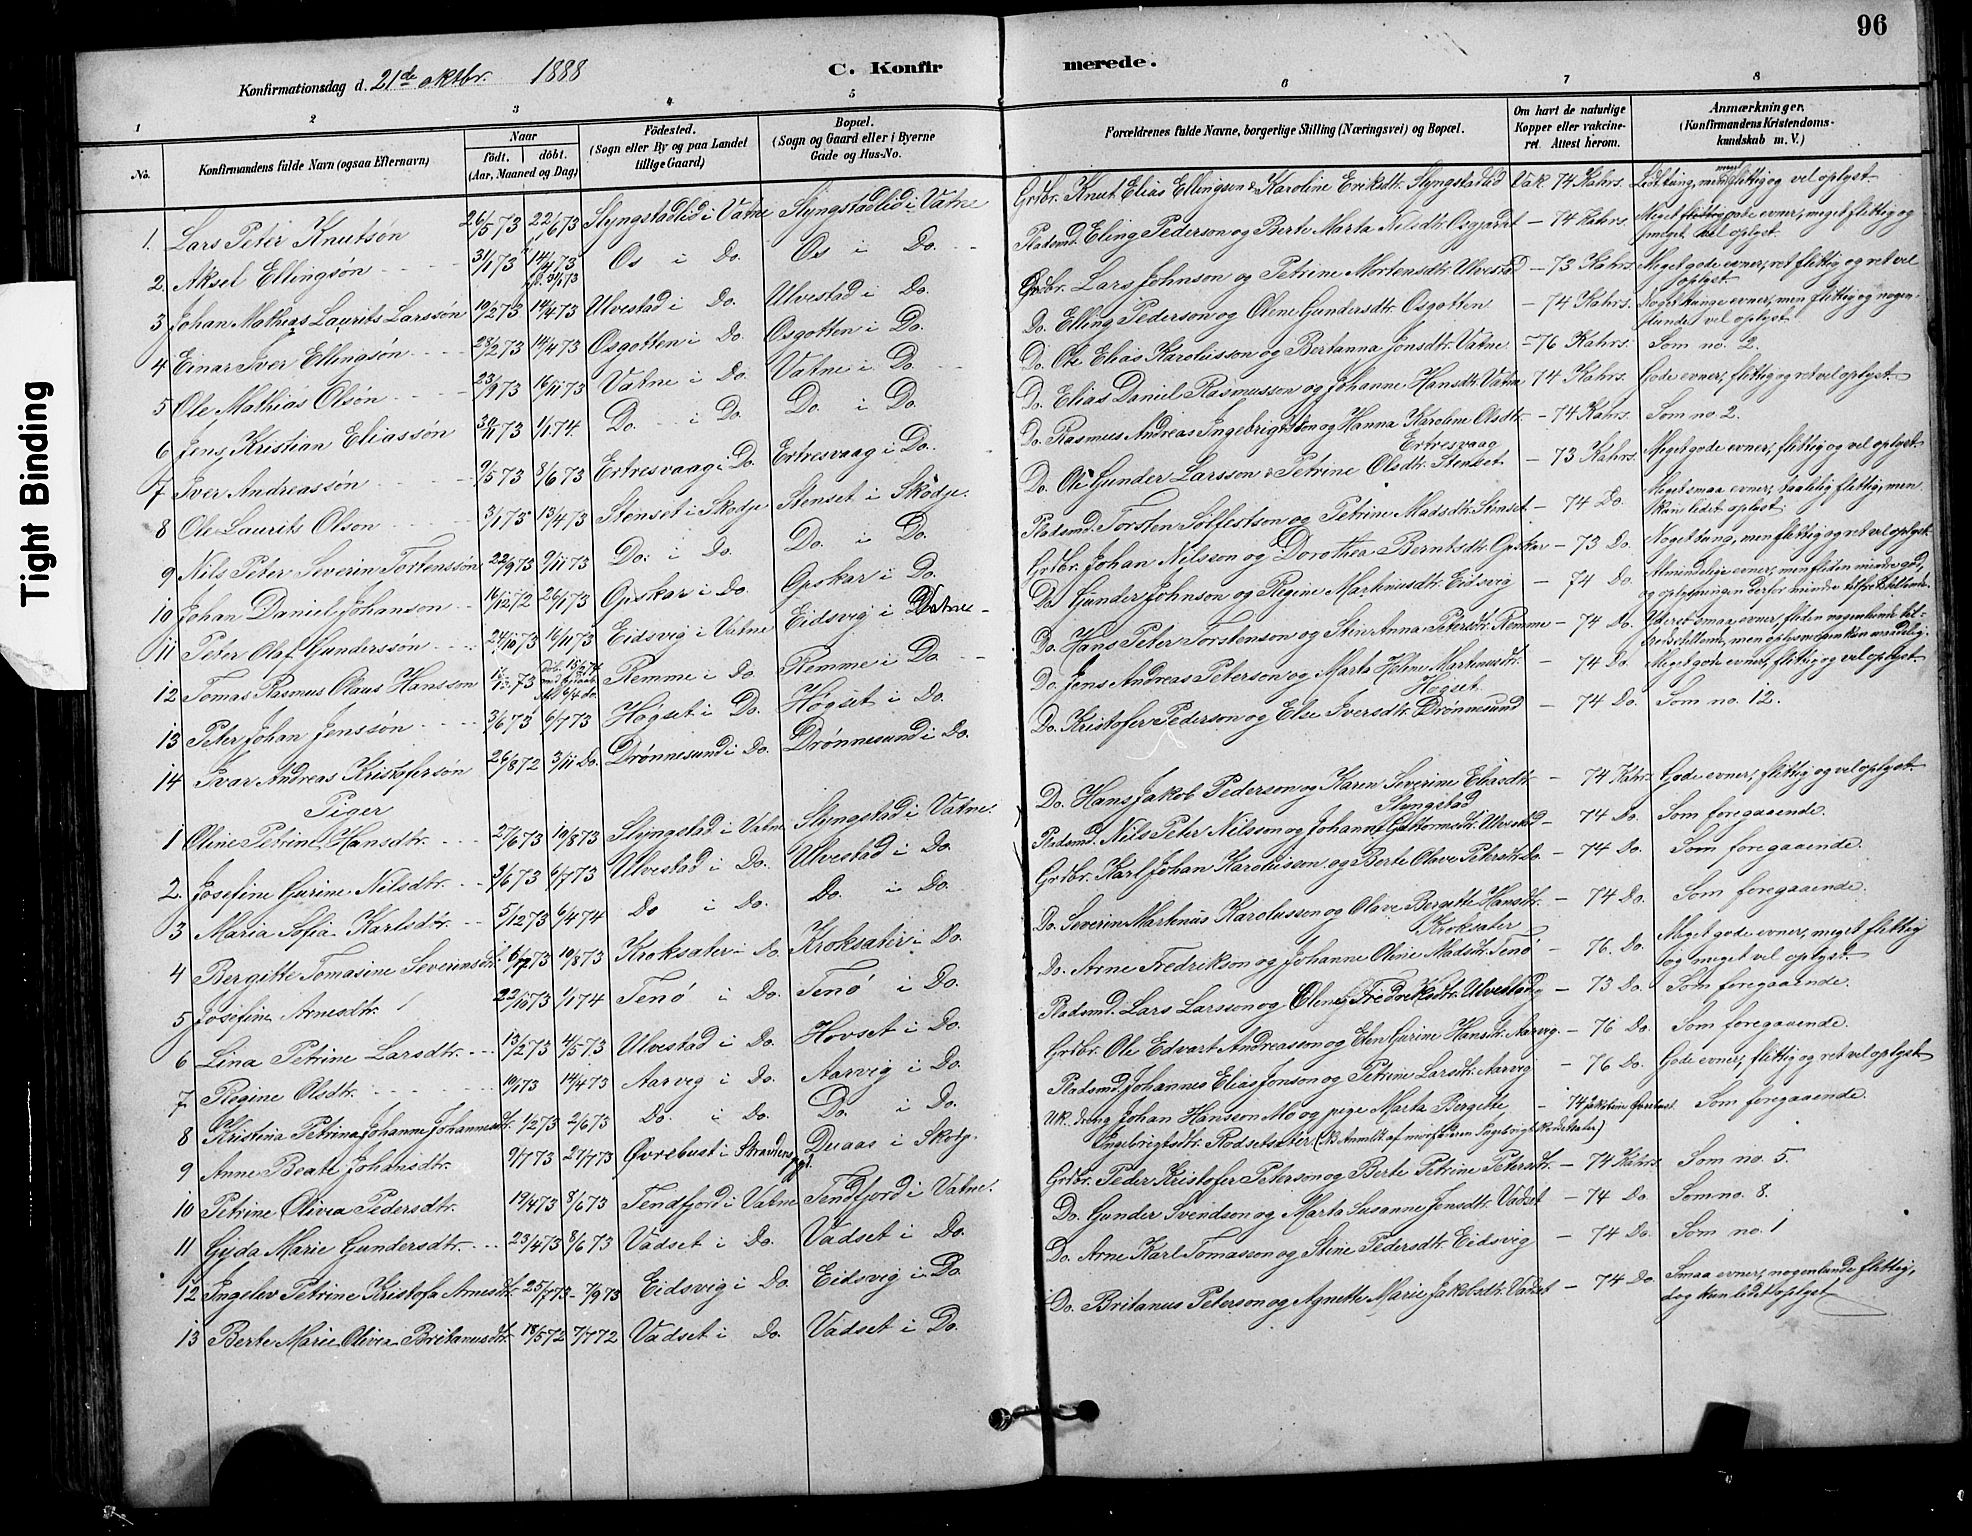 96
Konfirmationsdag d. 21de oktbr. 1888
C. Konfirmerede.
Tight Binding
1 2 3 4 5 6 7 8
No. Konfirmandens fulde Navn (ogsaa Efternavn) Naar født. døbt. (Aar, Maaned og Dag) Fødested. (Sogn eller By og paa Landet tillige Gaard) Bopæl. (Sogn og Gaard eller i Byerne Gade og Hus-No. Forældrenes fulde Navne, borgerlige Stilling (Næringsvei) og Bopæl. Om havt de naturlige Kopper eller vakcineret. Attest herom. Anmærkninger. (Konfirmandens Kristendomskundskab m. V.)
1. Lars Peter Knutsøn 26/5 73 22/6 73 Slyngstadlid i Vatne Slyngstadlid i Vatne Grdbr. Knut Elias Ellingsen & Karoline Eriksdtr. Slyngstadlid Vak. 74 Kahrs. Lidt tung, men flittig og vel oplyst
2. Aksel Ellingsøn 31/1 73 14/4 73 Os i Do. Os i Do. Pladsmd. Eling Pederson og Berte Marta Nilsdtr. Osgjærdet - 74 Kahrs. Meget gode evner, meget flittig og meget vel oplyst
3 Johan Mathias Laurits Larssøn 19/2 73 14/4 73 Ulvestad i Do. Ulvestad i Do. Grdbr. Lars Johnson og Petrine Mortensdtr. Ulvestad - 73 Kahrs. Meget gode evner, ret flittig og ret vel oplyst
4 Einar Iver Ellingsøn 28/2 73 14/4 73 Osgotten i Do. Osgotten i Do. Do. Elling Pederson og Olene Gundersdtr. Osgotten - 74 Kahrs. Noget tunge evner, men flittig og nogenlunde vel oplyst
5 Ole Mathias Olsøn 23/9 73 16/11 73 Vatne i Do. Vatne i Do. Do. Ole Elias Karolusson og Bertanna Jonsdtr. Vatne - 76 Kahrs. Som no. 2.
6 Jens Kristian Eliassøn 30/11 73 1/1 74. Do. i Do. Do. i Do. Do. Elias Daniel Rasmusson og Johanne Hansdtr. Vatne 74 Kahrs. Gode evner, flittig og ret vel oplyst
7 Iver Andreassøn 9/5 73 8/6 73 Ertresvaag i Do. Ertresvaag i Do. Do. Rasmus Andreas Ingebrigtsson og Hanna Karoline Olsdtr. Ertresvaag - 74 Kahrs. Som no. 2.
8 Ole Laurits Olson 3/1 73 13/4 73 Stenset i Skodje Stenset i Skodje. Do. Ole Gunder Larsson & Petrine Olsdtr. Stenset - 73 Kahrs. Meget gode evner, flittig og vel oplyst
9 Nils Peter Severin Torstensøn 22/9 73 9/11 73 Do. i Do. Do. i Do. Pladsmd. Torsten Solfestson og Petrine Madsdtr. Stenset - 74 Do. Meget smaa evner, taalelig flittig, men kun lidet oplyst
10 Johan Daniel Johanson 16/12 72 26/1 73 Opskar i Do. Opskar i Do. Grdbr. Johan Nilsson og Dorothea Berntsdtr. Opskar - 73 Do. Noget tung, men flittig og ret vel oplyst
11 Peter Olaf Gunderssøn 24/10 73 16/11 73 Eidsvig i Vatne Eidsvig i Vatne Do. Gunder Johnson og Regine Martinusdtr. Eidsvig - 74 Do. Almindelige evner, men fliden mindre god, og oplysningen derfor mindre tilfredsstillende.
12 Tomas Rasmus Olaus Hansson Remme i Do. Remme i Do. Do. Hans Peter Torstenson og Stin Anna Petersdtr. Remme - 74 Do. Yderst smaa evner, fliden nogenlunde tilfredsstillende, men oplysningen kun maadelig.
13 Peter Johan Jenssøn 3/6 73 6/7 73 Høgset i Do. Høgset i Do. Do. Jens Andreas Peterson og Marta Helene Martinusdtr. Høgset - 74 Do. Meget gode evner, flittig og vel oplyst
14 Ivar Andreas Kristofersøn 26/8 72 3/11 Do. Drønnesund i Do. Drønnesund i Do. Do. Kristofer Pederson og Else Iversdtr. Drønnesund - 74 Do. Som no. 12.
Piger
1 Oline Petrine Hansdtr. 27/6 73 10/8 73 Slyngstad i Vatne Slyngstad i Vatne. Do. Hans Jakob Pederson og Karen Severine Eliasdtr. Slyngstad - 74 Kahrs. Gode evner, flittig og vel oplyst.
2. Josefine Gurine Nilsdtr. 3/6 73 6/7 73 Ulvestad i Do. Ulvestad i Do. Pladsmd. Nils Peter Nilsson og Johanne Guttormsdtr. Ulvestad - 74 Do. Som foregaaende.
3 Maria Sofia Karlsdtr. 5/12 73 6/4 74 Do i Do. Do. i Do. Grdbr. Karl Johan Karolusson og Berte Olave Petersdtr. Do. - 74 Do. Som foregaaende.
4 Bergitte Tomasine Severinsdtr. 6/7 73 10/8 73 Kroksæter i Do. Kroksæter i Do. Do. Severin Martinus Karolusson og Olave Bergitte Hansdtr. Kroksæter - 74 Do. Som foregaaende.
5 Josefine Arnesdtr. 22/10 73 1/1 74 Tenø i Do. Tenø i Do. Do. Arne Fredrikson og Johanne Oline Madsdtr. Tenø - 76. Do. Meget gode evner, meget flittig og meget vel oplyst
6 Lina Petrine Larsdtr. 13/2 73 4/5 73 Ulvestad i Do. Hovset i Do. Pladsmd. Lars Larsson og Oline Fredriksdtr. Ulvestad - 73 Do. Som foregaaende.
7. Regine Olsdtr. 19/1 73 14/4 73 Aarvig i Do. Aarvig i Do. Grdbr. Ole Edvart Andreasson og Elen Gurine Hansdtr. Aarvig - 76 Do. Som foregaaende.
8 Kristina Petrina Johanne Johannesdtr. 1/2 73 2/6 73 Do. i Do. Do. i Do. Pladsmd. Johannes Elias Jonson og Petrine Larsdtr. Aarvig - 76 Do. Gode evner, flittig og ret vel oplyst
9 Anne Beate Johansdtr. 9/7 73 27/7 73 Øvrebust i Strandens pgd. Deaas i Skodje. Uk. dreng Johan Hansson Mo og pige Marta Bergitte Ingebrigtsdtr. Rodsetsæter - 74 Som foregaaende.
10 Petrine Olivia Pedersdtr. 19/4 73 8/6 73 Tendfjord i Vatne Tendfjord i Vatne. Grdbr. Peder Kristofer Peterson og Berte Petrine Petersdtr. - 74 Kahrs. Som no. 5.
11 Gyda Marie Gundersdtr. 23/4 73 8/6 73 Vadset i Do. Vadset i Do. Do. Gunder Svendson og Marta Susanne Jonsdtr. Vadset - 74 Do. Som no. 8.
12 Ingelev Petrine Kristofa Arnesdtr. 25/7 73 7/9 73 Eidsvig i Do. Eidsvig i Do. Do. Arne Karl Tomasson og Stine Pedersdtr. Eidsvig - 74 Do. Som no. 1
13 Berte Marie Olivia Britanusdtr. 18/5 72 7/7 72 Vadset i Do. Vadset i Do. Do. Britanus Peterson og Agnette Marie Jakobsdtr. Vadset - 74 Do. Smaa evner, nogenlunde flittig, og kun lidet oplyst